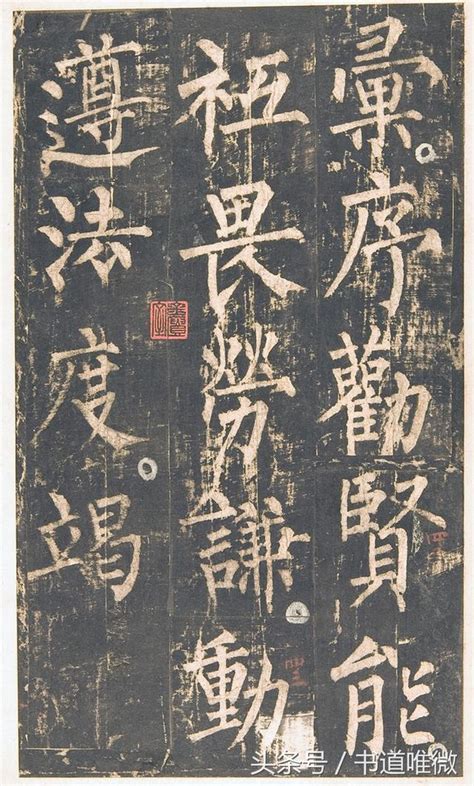 彙序勸賢能
祗畏勞謙動
遵法度竭
头条号 / 书道唯微